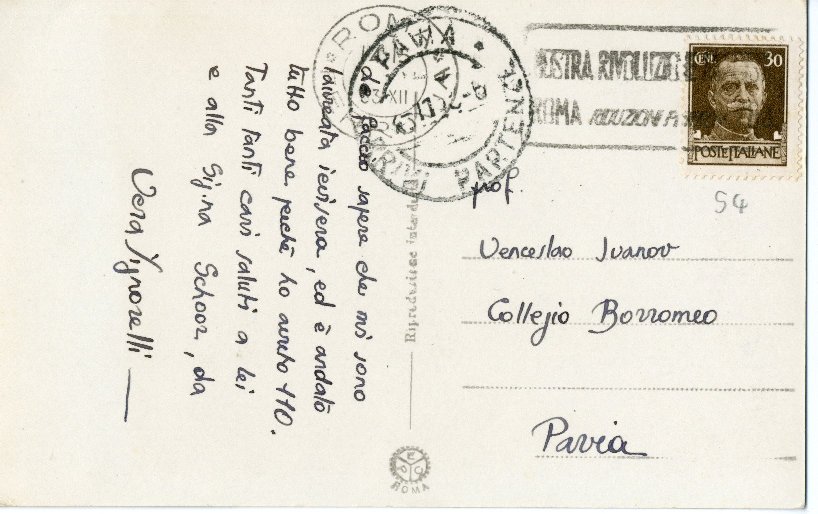 faccio sapere che mi sono
laureata ierisera, ed è andato
tutto bene perchè ho avuto 110.
Tanti tanti cari saluti a lei
e alla Sig.na Schoor, da
Vera Signorelli
Riproduzione interdetta
ROMA
ROMA
PAVIA
PARTENZE
ROMA RIDUZIONI
CENT. 30
POSTE ITALIANE
54
prof.
Venceslao Ivanov
Collegio Borromeo
Pavia